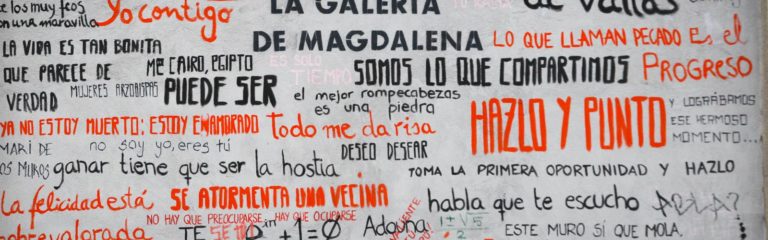 e los muy feos
on una maravilla
Yo contigo
LA GALERÍA
DE MAGDALENA
de vallas
LA VIDA ES TAN BONITA
QUE PARECE DE
VERDAD
ME CAIRO, EGIPTO
MUJERES ARZOBISPAS
PUEDE SER
ES SOLO
TIEMPO
SOMOS LO QUE COMPARTIMOS
LO QUE LLAMAN PECADO ES el
PROGRESO
el mejor rompecabezas
es una piedra
HAZLO Y PUNTO
Y LOGRÁBAMOS
ESE HERMOSO
MOMENTO...
YA NO ESTOY MUERTO: ESTOY ENAMORADO
Todo me da risa
MARI DE
no soy yo, eres tú
DESEO DESEAR
OS MUROS
ganar tiene que ser la hostia
TOMA LA PRIMERA OPORTUNIDAD Y HAZLO
La felicidad está
sobrevalorada
SE ATORMENTA UNA VECINA
habla que te escucho
NO HAY QUE PREOCUPARSE. HAY QUE OCUPARSE
+1=0
1±√5
2
ESTE MURO SÍ QUE MOLA.